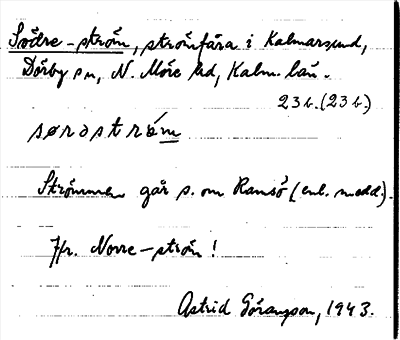 Södre-ström, strömfåra i Kalmarsund,
Dörby sn, N. Möre hd, Kalm. län.
23 b. (23 b)
sørəstróm
Strömmen går s. om Ramsö (enl. medd.).
Jfr. Norre-ström!
Astrid Göransson, 1943.